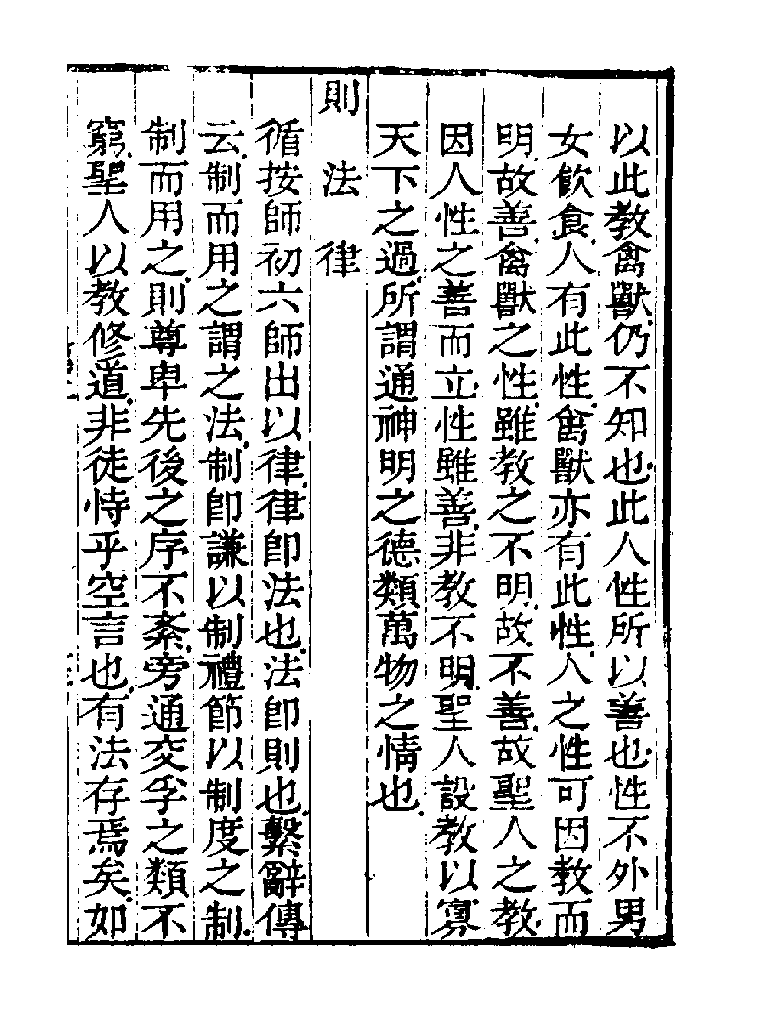 以此教禽獸仍不知也此人性所以善也性不外男
女飲食人有此性禽獸亦有此性人之性可因教而
明故善禽獸之性雖教之不明故不善故聖人之教
因人性之善而立性雖善非教不明聖人設教以寡
天下之過所謂通神明之德類萬物之情也
則法律
循按師初六師出以律律卽法也法卽則也繫辭傳
云制而用之謂之法制卽謙以制禮節以制度之制
制而用之則尊卑先後之序不紊旁通交孚之類不
窮聖人以教修道非徒恃乎空言也有法存焉矣如